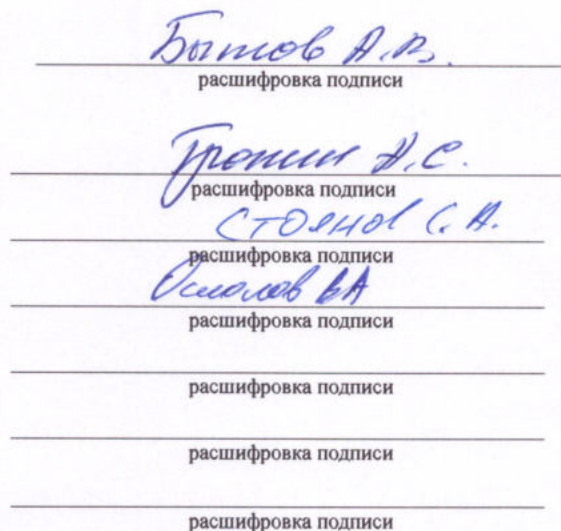 Бытов А.В.
расшифровка подписи
А.С.
расшифровка подписи
Стоянов С.А.
расшифровка подписи
ВА
расшифровка подписи
расшифровка подписи
расшифровка подписи
расшифровка подписи